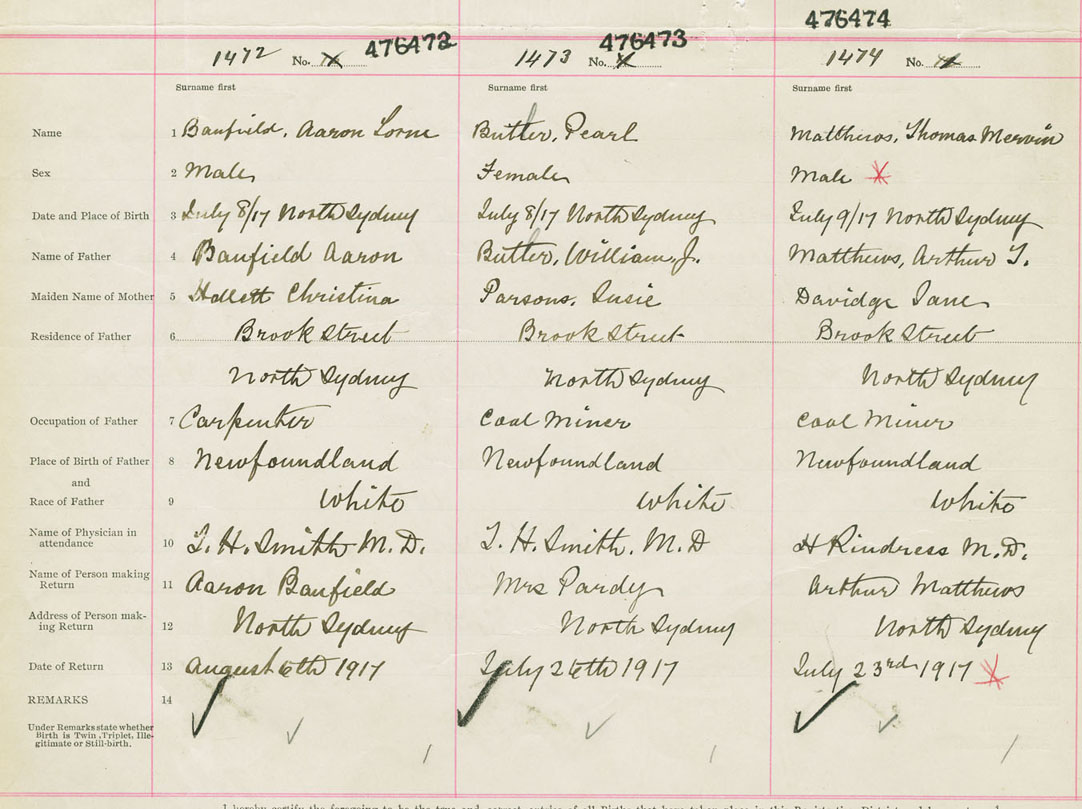 476474
1472 No. 476472 1473 No. 476473 1474 No.
Surname first Surname first Surname first
Name 1 Banfield, Aaron Lorne Butler, Pearl Matthews, Thomas Mervin
Sex 2 Male Female Male
Date and Place of Birth 3 July 8/17 North Sydney July 8/17 North Sydney July 9/17 North Sydney
Name of Father 4 Banfield Aaron Butler, William, J. Matthews, Arthur T.
Maiden Name of Mother 5 Hollett Christina Parsons, Susie Davidge Jane
Residence of Father 6 Brook Street Brook Street Brook Street
North Sydney North Sydney North Sydney
Occupation of Father 7 Carpenter Coal Miner Coal Miner
Place of Birth of Father 8 Newfoundland Newfoundland Newfoundland
and
Race of Father 9 White White White
Name of Physician in
attendance 10 T. H. Smith M. D. T. H. Smith. M. D H Rindress M. D.
Name of Person making
Return 11 Aaron Banfield Mrs Pardy Arthur Matthews
Address of Person mak-
ing Return 12 North Sydney North Sydney North Sydney
Date of Return 13 August 6th 1917 July 26th 1917 July 23rd 1917
REMARKS 14
Under Remarks state whether
Birth is Twin, Triplet, Ille-
gitimate or Still-birth.
I hereby certify the foregoing to be the true and correct entries of all Births that have taken place in this Registration District